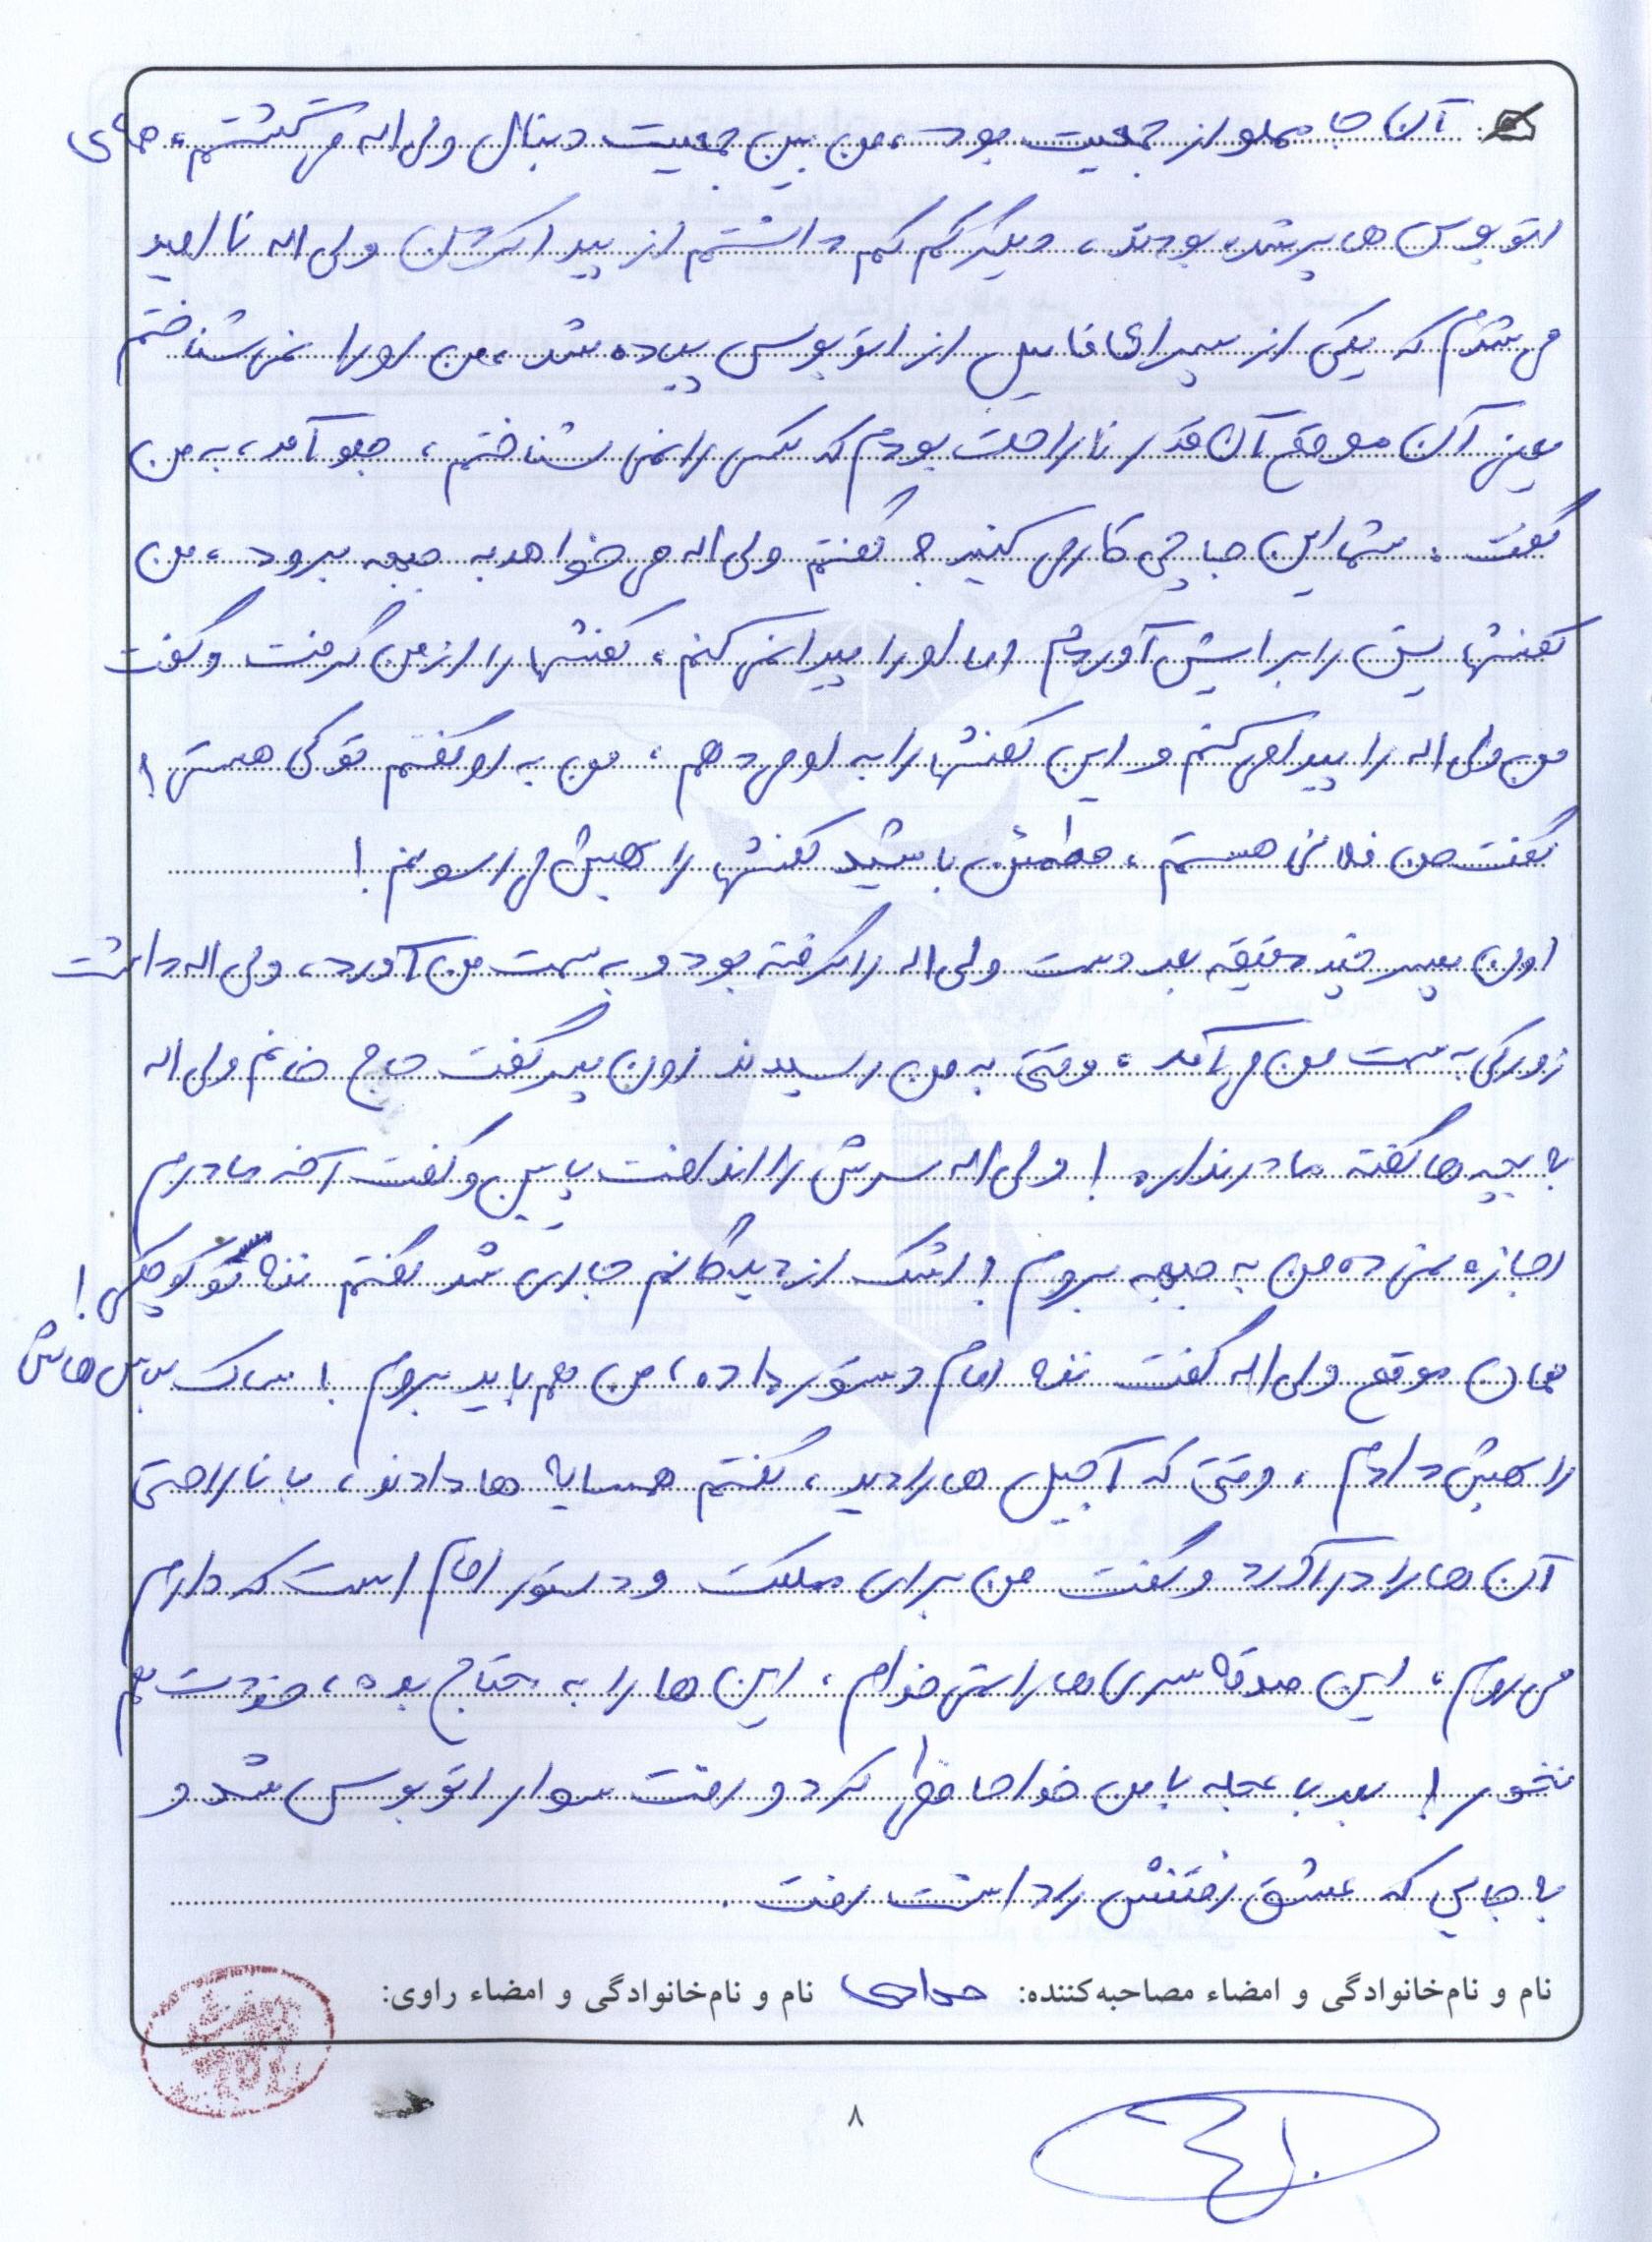 آن جا مملو از جمعیت بود، من بین جمعیت دنبال ولی اله می گشتم، همه ی
اتوبوس ها پر شده بودند، دیگر کم کم داشتم از پیدا کردن ولی اله نا امید
می شدم که یکی از پسرای فامیل از اتوبوس پیاده شد، من او را نمی شناختم
یعنی آن موقع آن قدر ناراحت بودم که کسی را نمی شناختم، جلو آمد، به من
گفت: شما این جا چی کار می کنید؟ گفتم ولی اله می خواهد به جبهه برود، من
کفشهایش را برایش آوردم اما او را پیدا نمی کنم، کفشها را از من گرفت و گفت
من ولی اله را پیدا می کنم و این کفشها را به او می دهم، من به او گفتم تو کی هستی؟
گفت من فلانی هستم، مطمئن باشید کفشها را بهش می رسونم!
اون پسر چند دقیقه بعد دست ولی اله را گرفته بود و به سمت من آورد، ولی اله داشت
زورکی به سمت من می آمد، وقتی به من رسیدند اون پسر گفت حاج خانم ولی اله
به بچه ها گفته مادر نداره! ولی اله سرش را انداخت پایین و گفت آخه مادرم
اجازه نمی ده من به جبهه بروم! اشک از دیدگانم جاری شد گفتم ننه تو کوچکی!
همان موقع ولی اله گفت ننه امام دستور داده، من هم باید بروم! ساک لباس هاش
را بهش دادم، وقتی که آجیل ها را دید، گفتم همسایه ها دادند، با ناراحتی
آن ها را درآورد و گفت من برای مملکت و دستور امام است که دارم
می روم، این صدقه سری ها را نمی خوام، این ها را به محتاج بده، خودت هم
نخور! بعد با عجله با من خداحافظی کرد و رفت سوار اتوبوس شد و
به جایی که عشق رفتنش را داشت رفت.
نام و نام‌خانوادگی و امضاء مصاحبه‌کننده: نام و نام‌خانوادگی و امضاء راوی:
۸